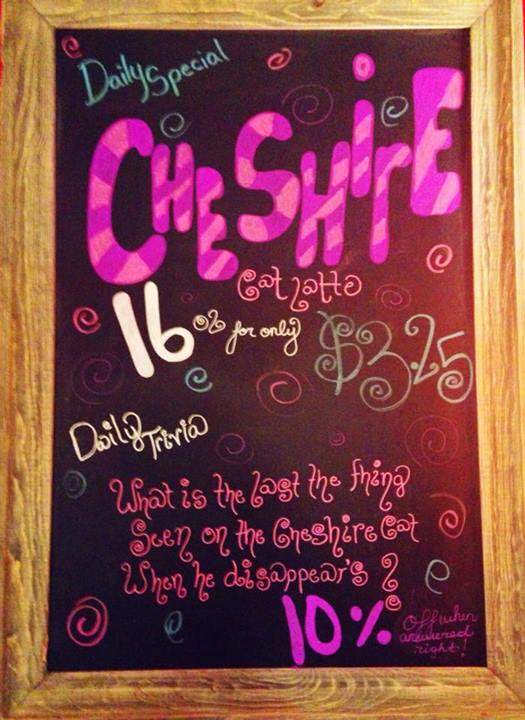 Daily Special
CHESHirE
Cat Latte
16 oz for only $3.25
Daily Trivia
What is the last the thing
Seen on the Cheshire Cat
When he disappear's ?
10% Off when
answered
right!